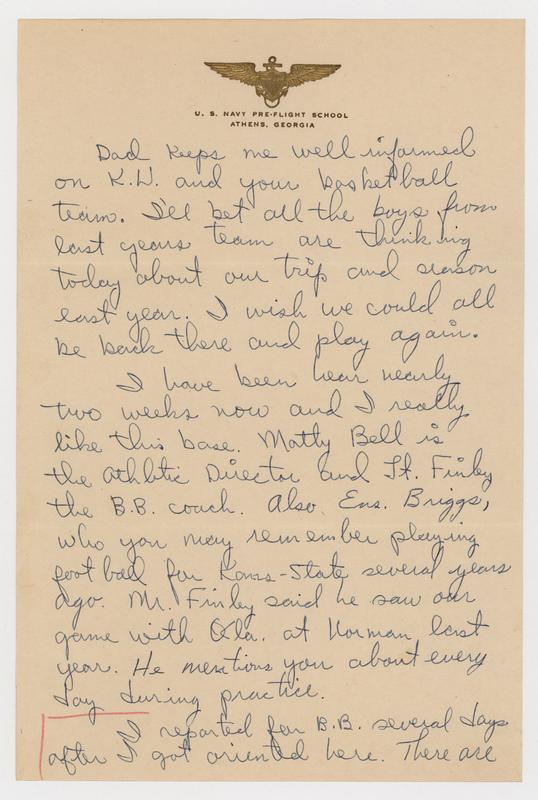 U. S. NAVY PRE-FLIGHT SCHOOL
ATHENS, GEORGIA
Dad keeps me well informed
on K.U. and your basketball
team. I'll bet all the boys from
last years team are thinking
today about our trip and season
last year. I wish we could all
be back there and play again.
I have been hear nearly
two weeks now and I really
like this base. Matty Bell is
the Athletic Director and Lt. Finley
the B.B. coach. Also Ens. Briggs,
who you may remember playing
foot ball for Kans-State several years
ago. Mr. Finley said he saw our
game with Okla. at Norman, last
year. He mentions you about every
day during practice.
I reported for B.B. several days
after I got oriented here. There are